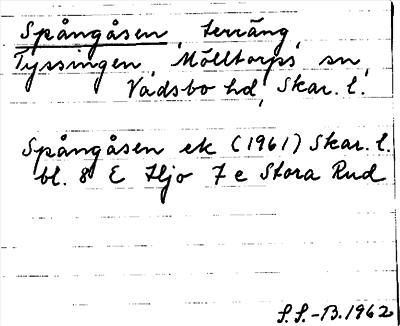 Spångåsen, terräng,
Tyssingen, Mölltorps sn,
Vadsbo hd, Skar. l.
Spångåsen ek (1961) Skar. l.
bl. 8 E Hjo 7 e Stora Rud
S.S.-B. 1962